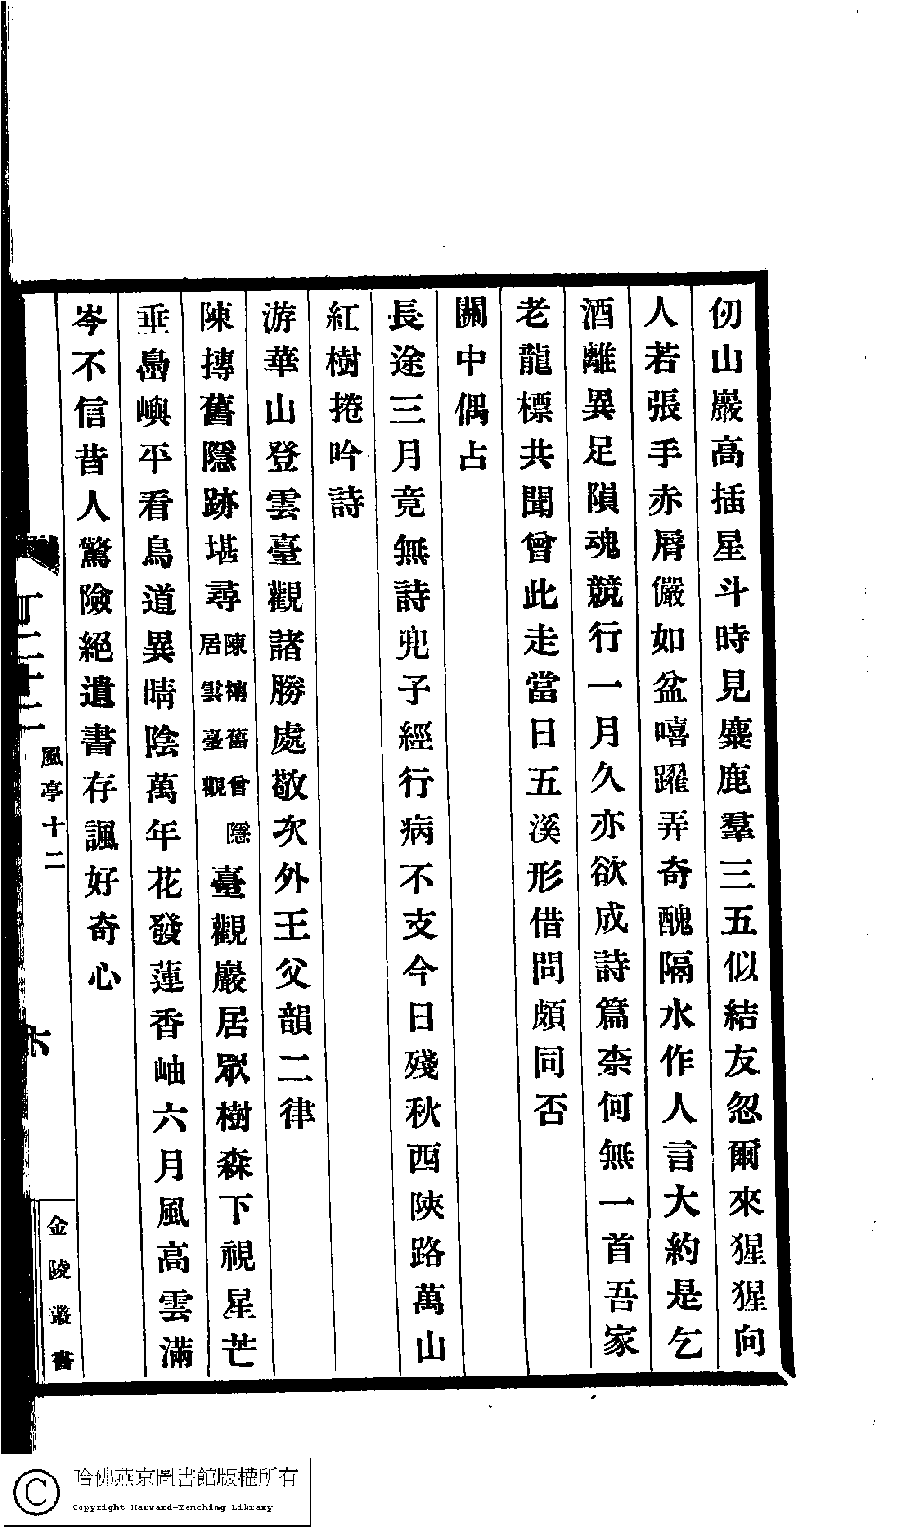 仞山巖高插星斗時見麋鹿羣三五似結友忽爾來猩猩向
人若張手赤脣儼如盆嘻躍弄奇醜隔水作人言大約是乞
酒離異足隕魂競行一月久亦欲成詩篇柰何無一首吾家
老龍標共聞曾此走當日五溪形借問頗同否
關中偶占
長途三月竟無詩兜子經行病不支今日殘秋西陝路萬山
紅樹捲吟詩
游華山登雲臺觀諸勝處敬次外王父韻二律
陳摶舊隱跡堪尋陳摶舊曾隱居雲臺觀臺觀巖居眾樹森下視星芒
垂嶨嶼平看鳥道異晴陰萬年花發蓮香岫六月風高雲滿
岑不信昔人驚險絕遺書存諷好奇心
風亭十二
六
金陵叢書
哈佛燕京圖書館版權所有
Copyright Harvard-Yenching Library